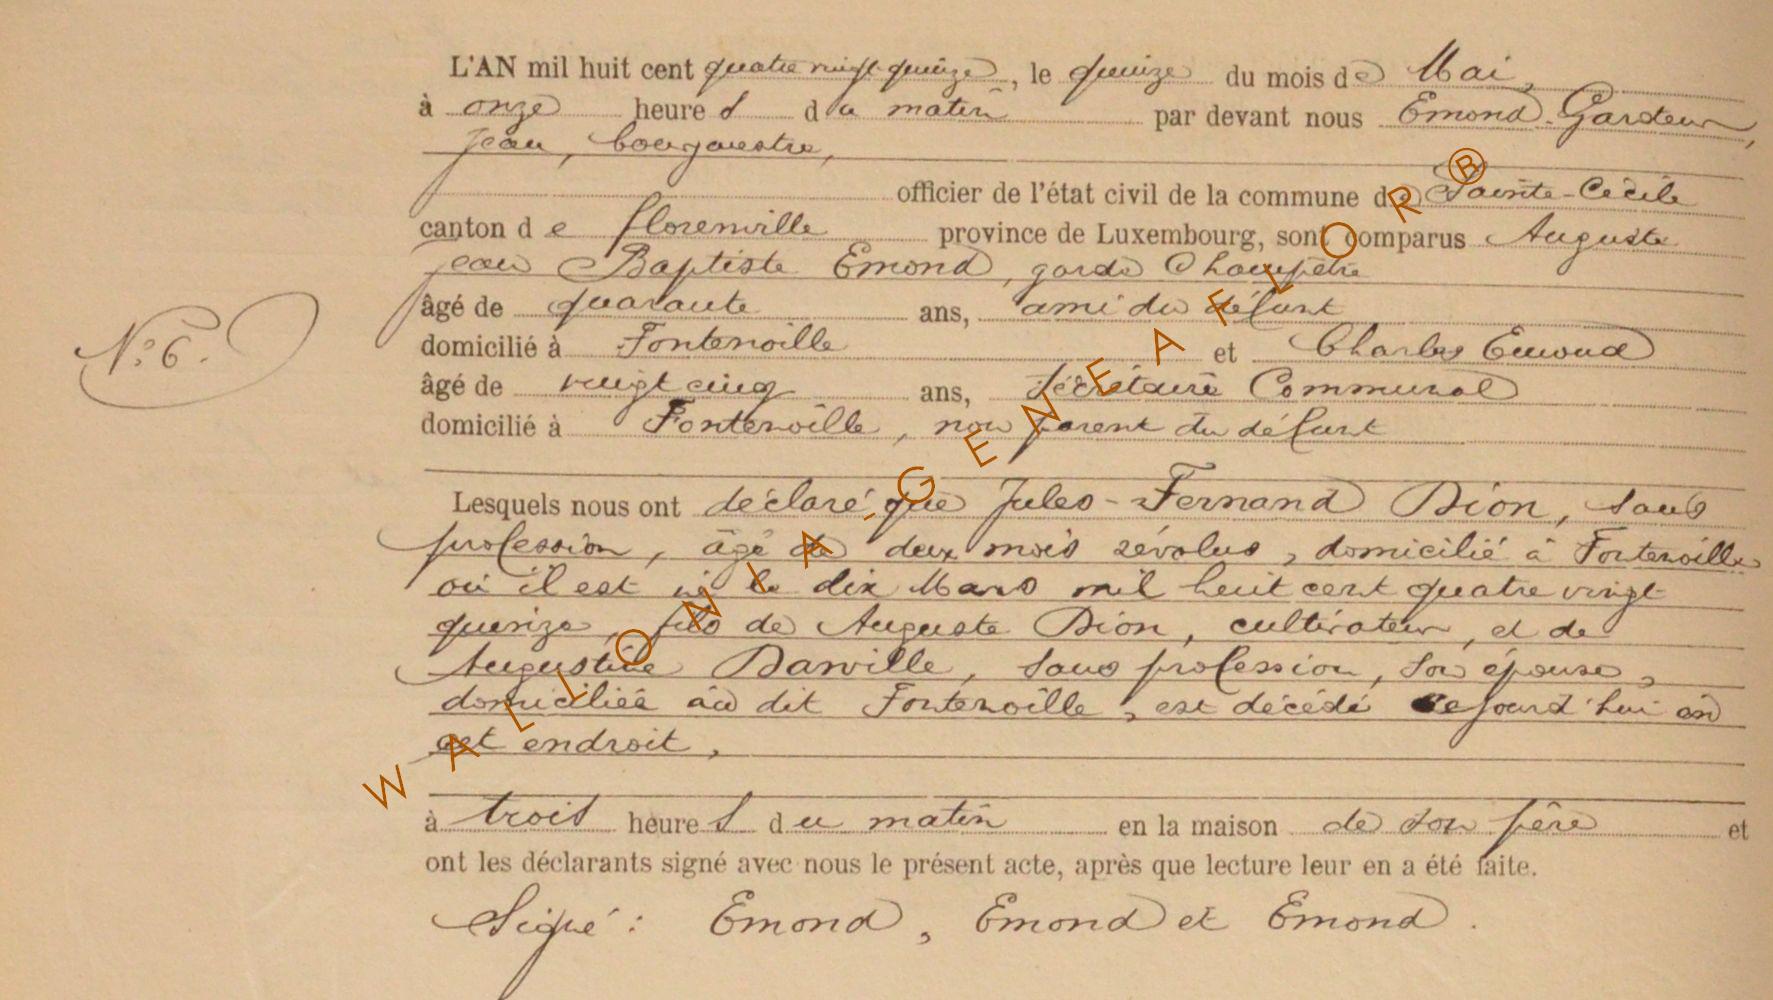 L'AN mil huit cent quatre vingt quinze, le quinze du mois de Mai,
à onze heures du matin par devant nous Emond-Gardeur,
Jean, bourgmestre,
officier de l'état civil de la commune de Sainte-Cécile
canton de florenville province de Luxembourg, sont comparus Auguste
jean Baptiste Emond, garde Champêtre
âgé de quarante ans, ami du défunt
N.° 6.
domicilié à Fontenoille et Charles Emond
âgé de vingt cinq ans, Sécrétaire Communal
domicilié à Fontenoille, non parent du défunt
Lesquels nous ont déclaré que Jules-Fernand Dion, sans
profession, âgé de deux mois révolus, domicilié à Fontenoille
où il est né le dix Mars mil huit cent quatre vingt
quinze, fils de Auguste Dion, cultivateur, et de
Augustine Darville, sans profession, son épouse,
domiciliée au dit Fontenoille, est décédé cejourd'hui en
cet endroit,
à trois heures du matin en la maison de son père et
ont les déclarants signé avec nous le présent acte, après que lecture leur en a été faite.
Signé: Emond, Emond et Emond.
WALLONIA-GENEAFLOR®